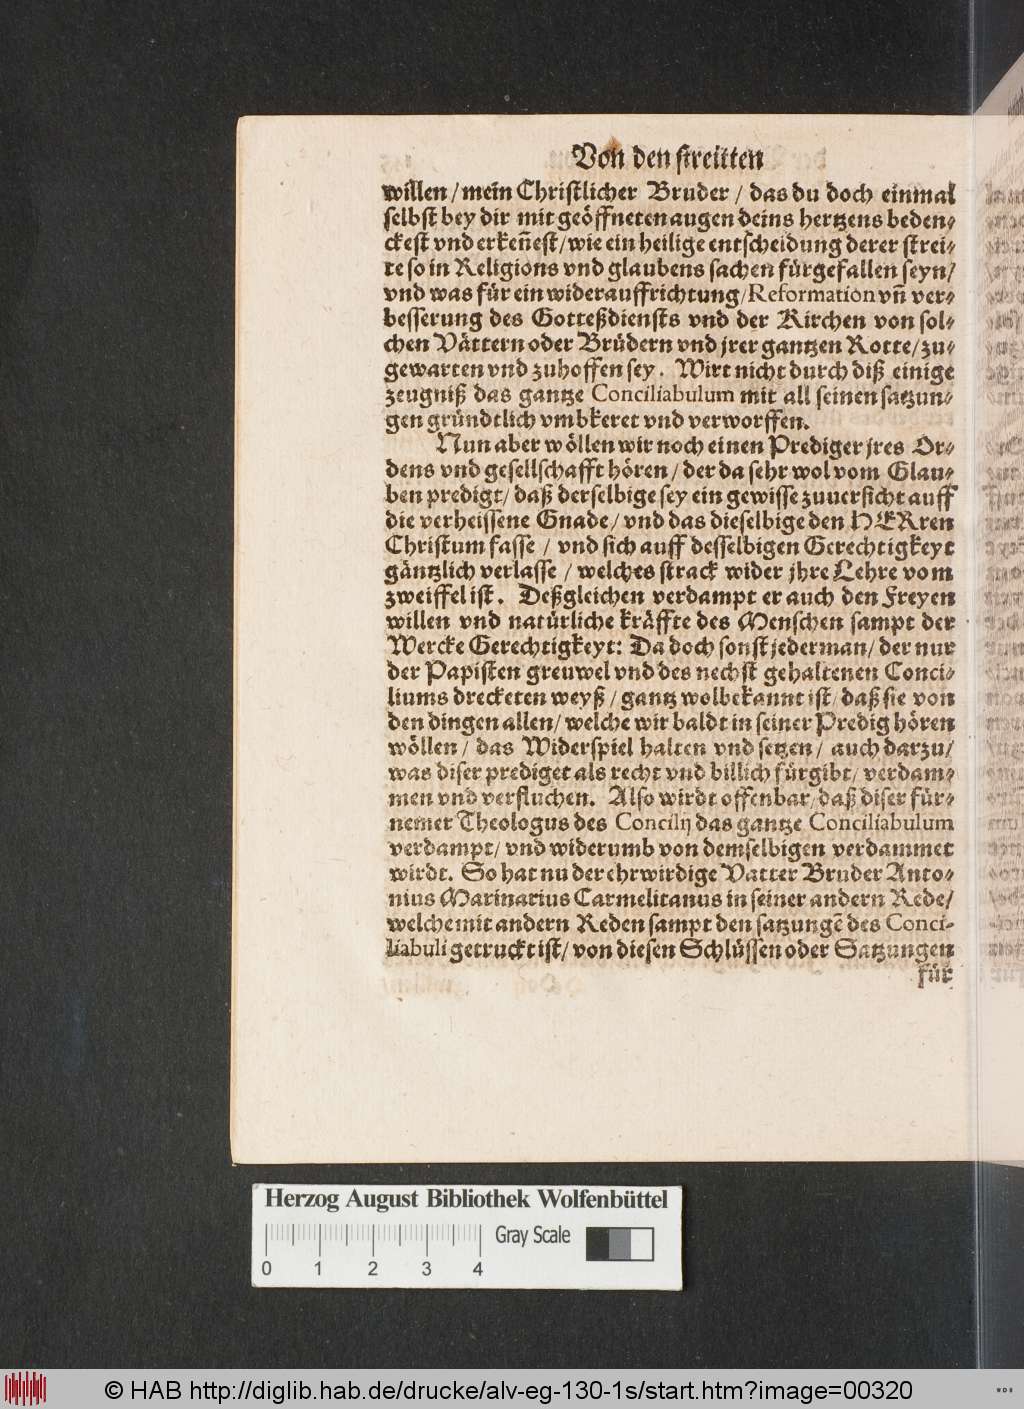 Von den streitten
willen / mein Christlicher Bruder / das du doch einmal
selbst bey dir mit geöffneten augen deins hertzens beden⸗
ckest vnd erkeñest / wie ein heilige entscheidung derer strei⸗
te so in Religions vnd glaubens sachen fürgefallen seyn /
vnd was für ein widerauffrichtung / Reformation vñ ver⸗
besserung des Gotteßdiensts vnd der Kirchen von sol⸗
chen Vättern oder Brüdern vnd jrer gantzen Rotte / zu⸗
gewarten vnd zuhoffen sey. Wirt nicht durch diß einige
zeugniß das gantze Conciliabulum mit all seinen satzun⸗
gen gründtlich vmbkeret vnd verworffen.
Nun aber wöllen wir noch einen Prediger jres Or⸗
dens vnd gesellschafft hören / der da sehr wol vom Glau⸗
ben predigt / daß derselbige sey ein gewisse zuuersicht auff
die verheissene Gnade / vnd das dieselbige den HERren
Christum fasse / vnd sich auff desselbigen Gerechtigkeyt
gäntzlich verlasse / welches strack wider jhre Lehre vom
zweiffel ist. Deßgleichen verdampt er auch den Freyen
willen vnd natürliche kräffte des Menschen sampt der
Wercke Gerechtigkeyt: Da doch sonst jederman / der nur
der Papisten greuwel vnd des nechst gehaltenen Conci⸗
liums drecketen weyß / gantz wolbekannt ist / daß sie von
den dingen allen / welche wir baldt in seiner Predig hören
wöllen / das Widerspiel halten vnd setzen / auch darzu /
was diser prediget als recht vnd billich fürgibt / verdam⸗
men vnd verfluchen. Also wirdt offenbar / daß diser für⸗
nemer Theologus des Concilij das gantze Conciliabulum
verdampt / vnd widerumb von demselbigen verdammet
wirdt. So hat nu der ehrwirdige Vatter Bruder Anto⸗
nius Marinarius Carmelitanus in seiner andern Rede /
welche mit andern Reden sampt den satzungẽ des Conci-
liabuli getruckt ist / von diesen Schlüssen oder Satzungen
für
Herzog August Bibliothek Wolfenbüttel
Gray Scale
0 1 2 3 4
© HAB http://diglib.hab.de/drucke/alv-eg-130-1s/start.htm?image=00320